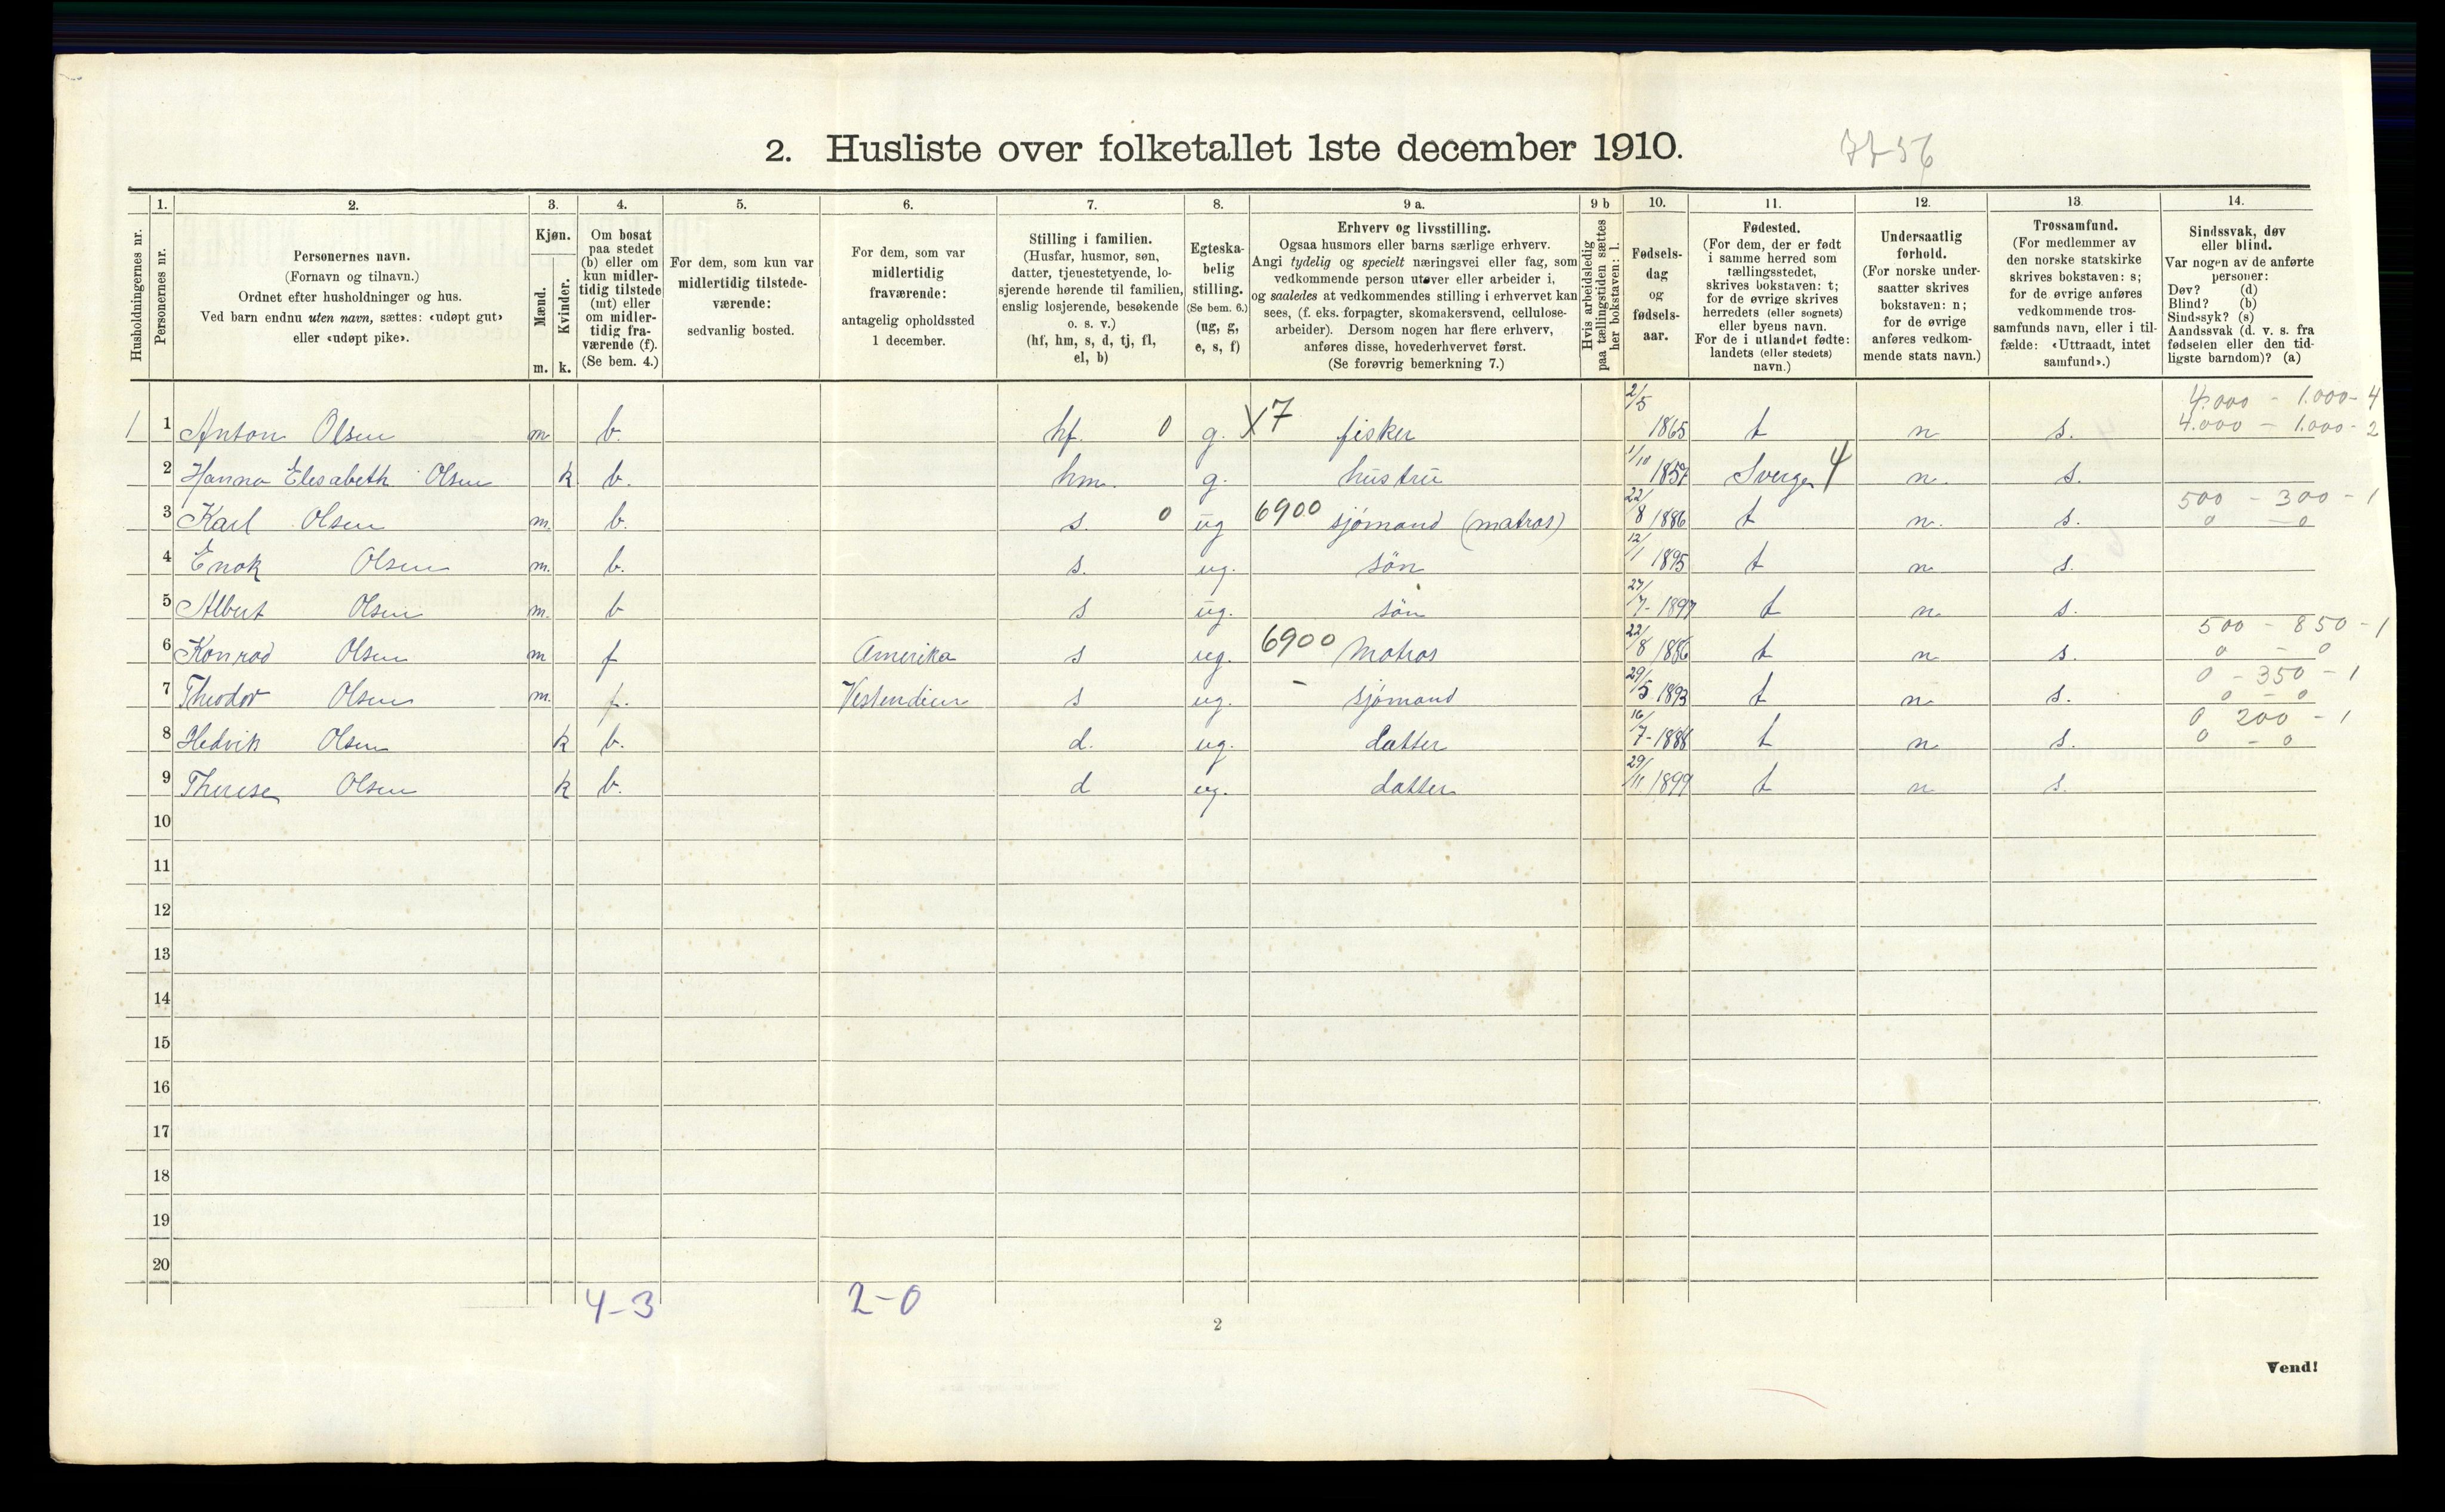 2. Husliste over folketallet 1ste december 1910.
7756
Husholdningernes nr.
1. Personernes nr.
2. Personernes navn.
(Fornavn og tilnavn.)
Ordnet efter husholdninger og hus.
Ved barn endnu uten navn, sættes: «udøpt gut»
eller «udøpt pike».
3. Kjøn.
Mænd. Kvinder.
m. k.
4. Om bosat
paa stedet
(b) eller om
kun midler-
tidig tilstede
(mt) eller
om midler-
tidig fra-
værende (f).
(Se bem. 4.)
5. For dem, som kun var
midlertidig tilstede-
værende:
sedvanlig bosted.
6. For dem, som var
midlertidig
fraværende:
antagelig opholdssted
1 december.
7. Stilling i familien.
(Husfar, husmor, søn,
datter, tjenestetyende, lo-
sjerende hørende til familien,
enslig losjerende, besøkende
o. s. v.)
(hf, hm, s, d, tj, fl,
el, b)
8. Egteska-
belig
stilling.
(Se bem. 6.)
(ug, g,
e, s, f)
9 a. Erhverv og livsstilling.
Ogsaa husmors eller barns særlige erhverv.
Angi tydelig og specielt næringsvei eller fag, som
vedkommende person utøver eller arbeider i,
og saaledes at vedkommendes stilling i erhvervet kan
sees, (f. eks. forpagter, skomakersvend, cellulose-
arbeider). Dersom nogen har flere erhverv,
anføres disse, hovederhvervet først.
(Se forøvrig bemerkning 7.)
9 b Hvis arbeidsledig
paa tællingstiden sættes
her bokstaven: l.
10. Fødsels-
dag
og
fødsels-
aar.
11. Fødested.
(For dem, der er født
i samme herred som
tællingsstedet,
skrives bokstaven: t;
for de øvrige skrives
herredets (eller sognets)
eller byens navn.
For de i utlandet fødte:
landets (eller stedets)
navn.)
12. Undersaatlig
forhold.
(For norske under-
saatter skrives
bokstaven: n;
for de øvrige
anføres vedkom-
mende stats navn.)
13. Trossamfund.
(For medlemmer av
den norske statskirke
skrives bokstaven: s;
for de øvrige anføres
vedkommende tros-
samfunds navn, eller i til-
fælde: «Uttraadt, intet
samfund».)
14. Sindssvak, døv
eller blind.
Var nogen av de anførte
personer:
Døv? (d)
Blind? (b)
Sindssyk? (s)
Aandssvak (d. v. s. fra
fødselen eller den tid-
ligste barndom)? (a)
4.000 - 1.000 - 4
1 1 Anton Olsen m b. hf. 0 g. X7 fisker 2/5 1865 t n s. 4.000 - 1.000 - 2
2 Hanna Elesabeth Olsen k b. hm. g. hustru 1/10 1857 Sverge 4 n. s.
500 - 300 - 1
3 Karl Olsen m. b. s. 0 ug 6900 sjömand (matros) 22/8 1886 t n. s. 0 - 0
4 Enok Olsen m. b. s. ug. sön 12/1 1895 t n s.
5 Albert Olsen m. b s ug. sön 27/7-1897 t n s.
500 - 850 - 1
6 Konrad Olsen m f Amerika s ug. 6900 Matros 22/8 1886 t n s. 0 - 0
0 - 350 - 1
7 Theodor Olsen m. f. Vestendien s ug. - sjömand 29/5 1893 t n s. 0 - 0
0 200 - 1
8 Hedvik Olsen k b. d. ug. datter 16/7-1888 t n s. 0 - 0
9 Therese Olsen k b. d ug. datter 29/11 1899 t n s.
10
11
12
13
14
15
16
17
18
19
20
4-3 2-0
2
Vend!